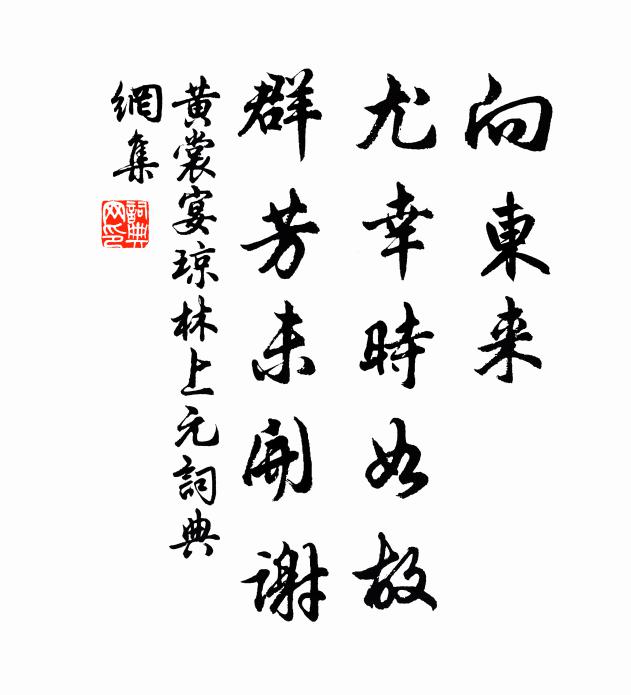 向東来
尤幸時如故
群芳未開謝
黄裳宴琼林上元詞典
網集
詞典
网印